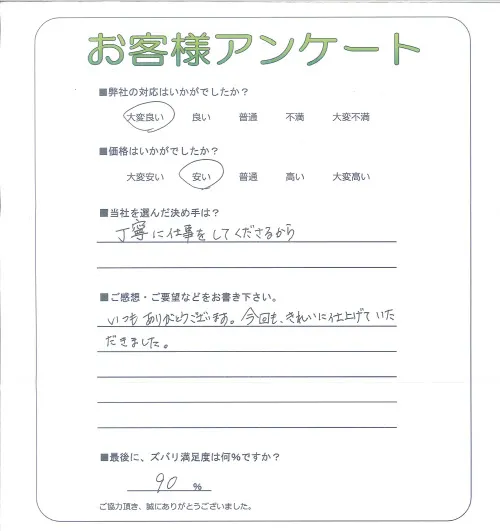 お客様アンケート
■弊社の対応はいかがでしたか？
大変良い 良い 普通 不満 大変不満
■価格はいかがでしたか？
大変安い 安い 普通 高い 大変高い
■当社を選んだ決め手は？
丁寧に仕事をしてくださるから
■ご感想・ご要望などをお書き下さい。
いつもありがとうございます。今回も、きれいに仕上げていた
だきました。
■最後に、ズバリ満足度は何%ですか？
90 %
ご協力頂き、誠にありがとうございました。